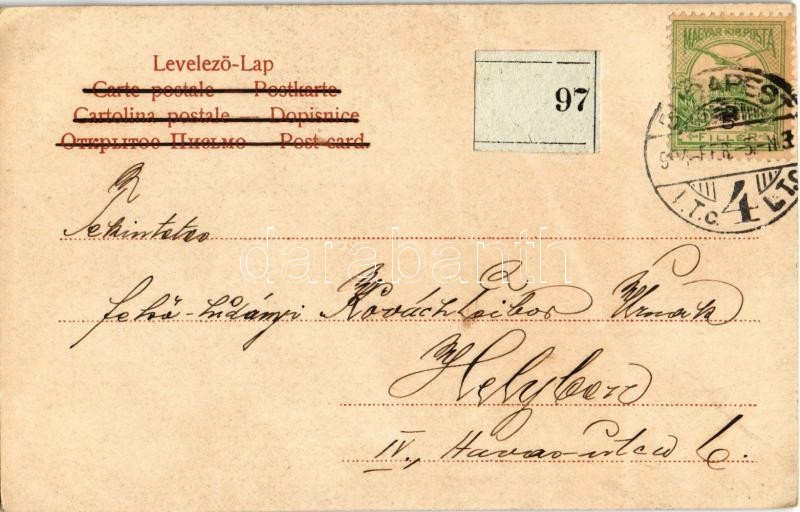 Levelező-Lap
Carte postale — Postkarte
Cartolina postale — Dopisnice
Открытое Письмо — Post card
97
MAGYAR KIR. POSTA
BUDAPEST
4
I.T.C.
Tekintetes
felső-hidányi Kovách Tibor Úrnak
Helyben
IV., Havas-utca 6.
darabanth